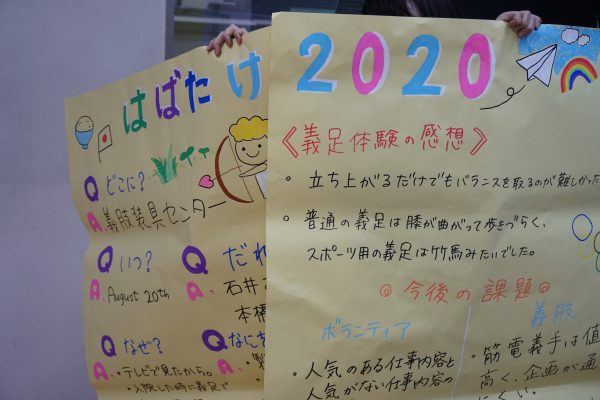 はばたけ
Qどこに?
A.義肢装具センター
Qいつ?
A. August 20th
Qだれ
A.石井
本橋
Qなぜ?
A.テレビで見たから。
入院した時に義足で
Qなにを
A.
2020
《義足体験の感想》
・立ち上がるだけでもバランスを取るのが難しかった
・普通の義足は膝が曲がって歩きづらく、
スポーツ用の義足は竹馬みたいでした。
◎今後の課題◎
ボランティア
・人気のある仕事内容と
人気がない仕事内容の
義肢
・筋電義手は値
高く、企画が通
にくい。